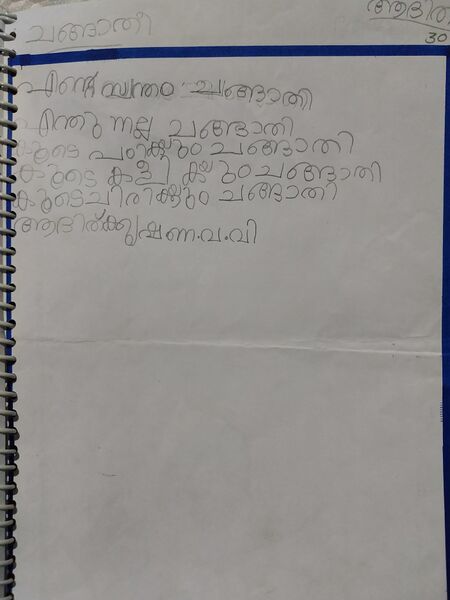 ചങ്ങാതീ
ആദിത
30
എന്റെ സ്വന്തം ചങ്ങാതി
എന്തു നല്ല ചങ്ങാതി
കൂടെ പഠിക്കും ചങ്ങാതി
കൂടെ കളിക്കും ചങ്ങാതി
കൂടെചിരിക്കും ചങ്ങാതി
ആദിത്കൃഷണ.വ.വി